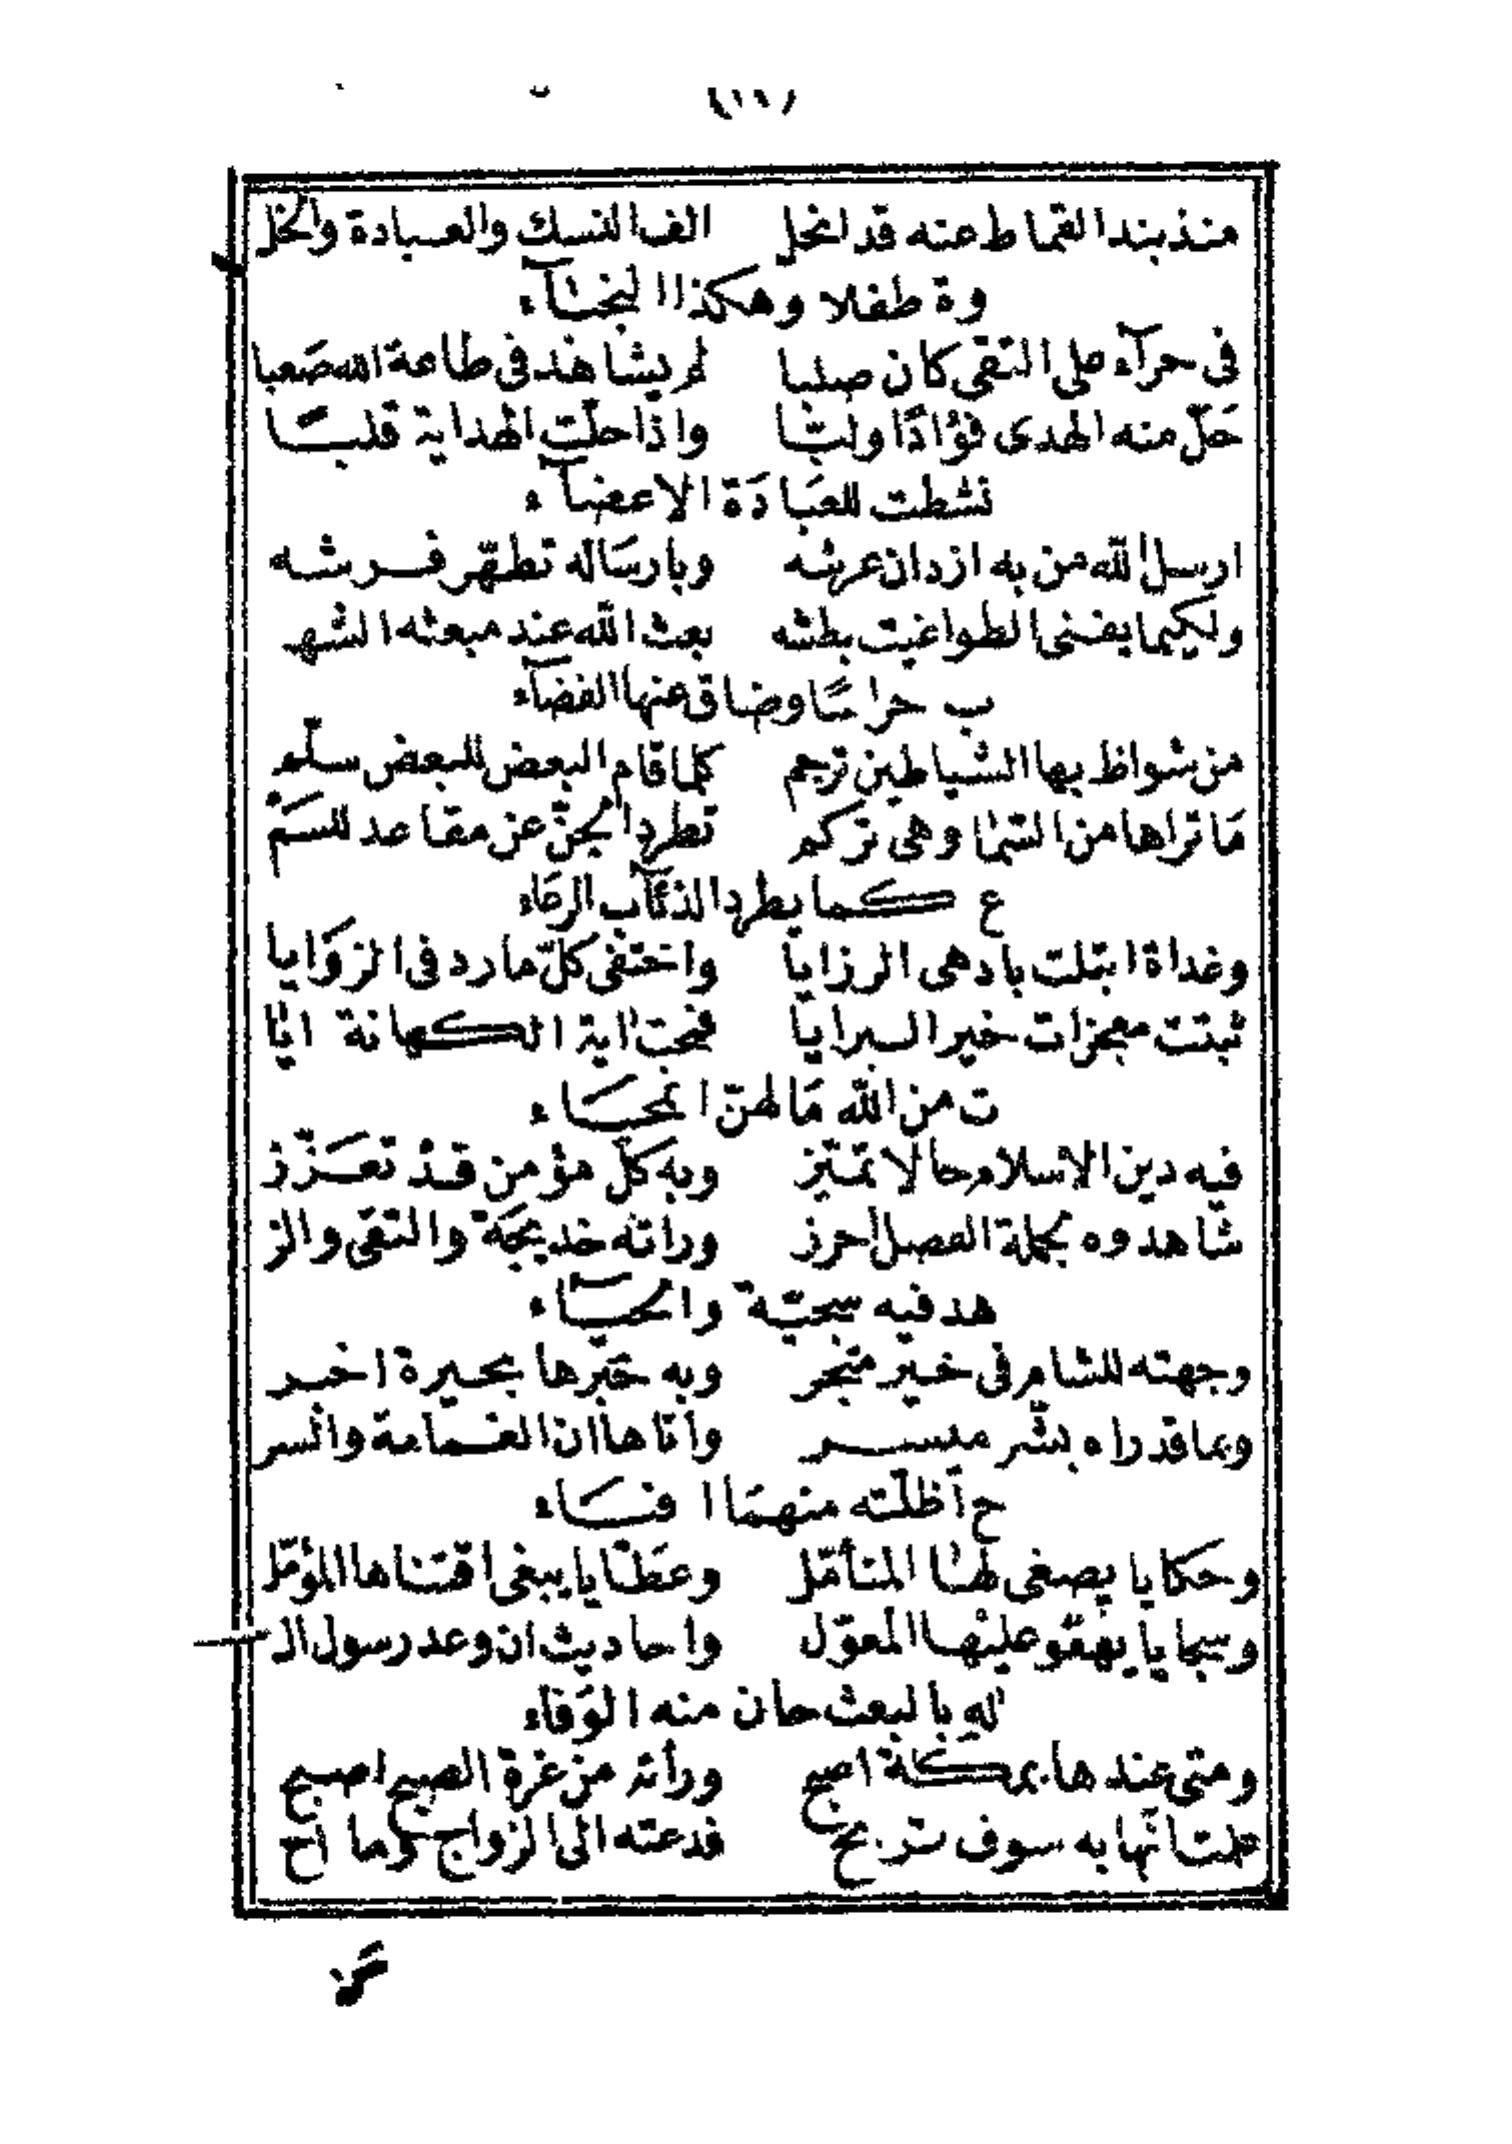 (١٦)
منذ بند القماط عنه قد انحل الف النسك والعبادة والخل
وة طفلا وهكذا النجبآء
فى حرآء على التقى كان صلبا لم يشاهد فى طاعة الله صَعبا
حَلّ منه الهدى فؤادًا ولبّا واذا حلّت الهداية قلبًا
نشطت للعبَادَة الاعضآء
ارسل الله من به ازدان عرشه وبارسَاله تطهّر فرشه
ولكيما يفنى الطواغيت بطشه بعث الله عند مبعثه الشه
ب حراسًا وضاق عنها الفضآء
من شواظ بها الشياطين ترجم كلما قام البعض للبعض سلّم
مَا تراها من السّما وهى تركم تطرد الجنّ عن مقاعد للسَمْ
ع كما يطرد الذئآب الرعَاء
وغداة ابتلت بادهى الرزايا واختفى كلّ مارد فى الزوَايا
ثبتت معجزات خير البرايا فمحت اية الكهانة ايا
ت من الله مَا لهنّ انمحَاء
فيه دين الاسلام حالا تميّز وبه كلّ مؤمن قد تعَزّز
شاهدوه بجملة الفصل احرز وراته خديجَة والتقى والز
هد فيه سجيّة والحيَآء
وجهته للشام فى خير متجر وبه حَبرها بحيرة اخبر
وبما قد راه بشّر ميسر واتاها ان الغمامة والسر
ح أظلّته منهمَا افيَاء
وحكايا يصغى لها المتأمّل وعطَايا يبغى اقتناها المؤمّل
وسجايا يهفو عليْها المعوّل واحاديث ان وعد رسول ال
له بالبعث حان منه الوَفاء
ومتى عندها بمكة اصبح ورأته من غرة الصبح اصبح
علمت انّها به سوف تربح فدعته الى الزواج وما اح